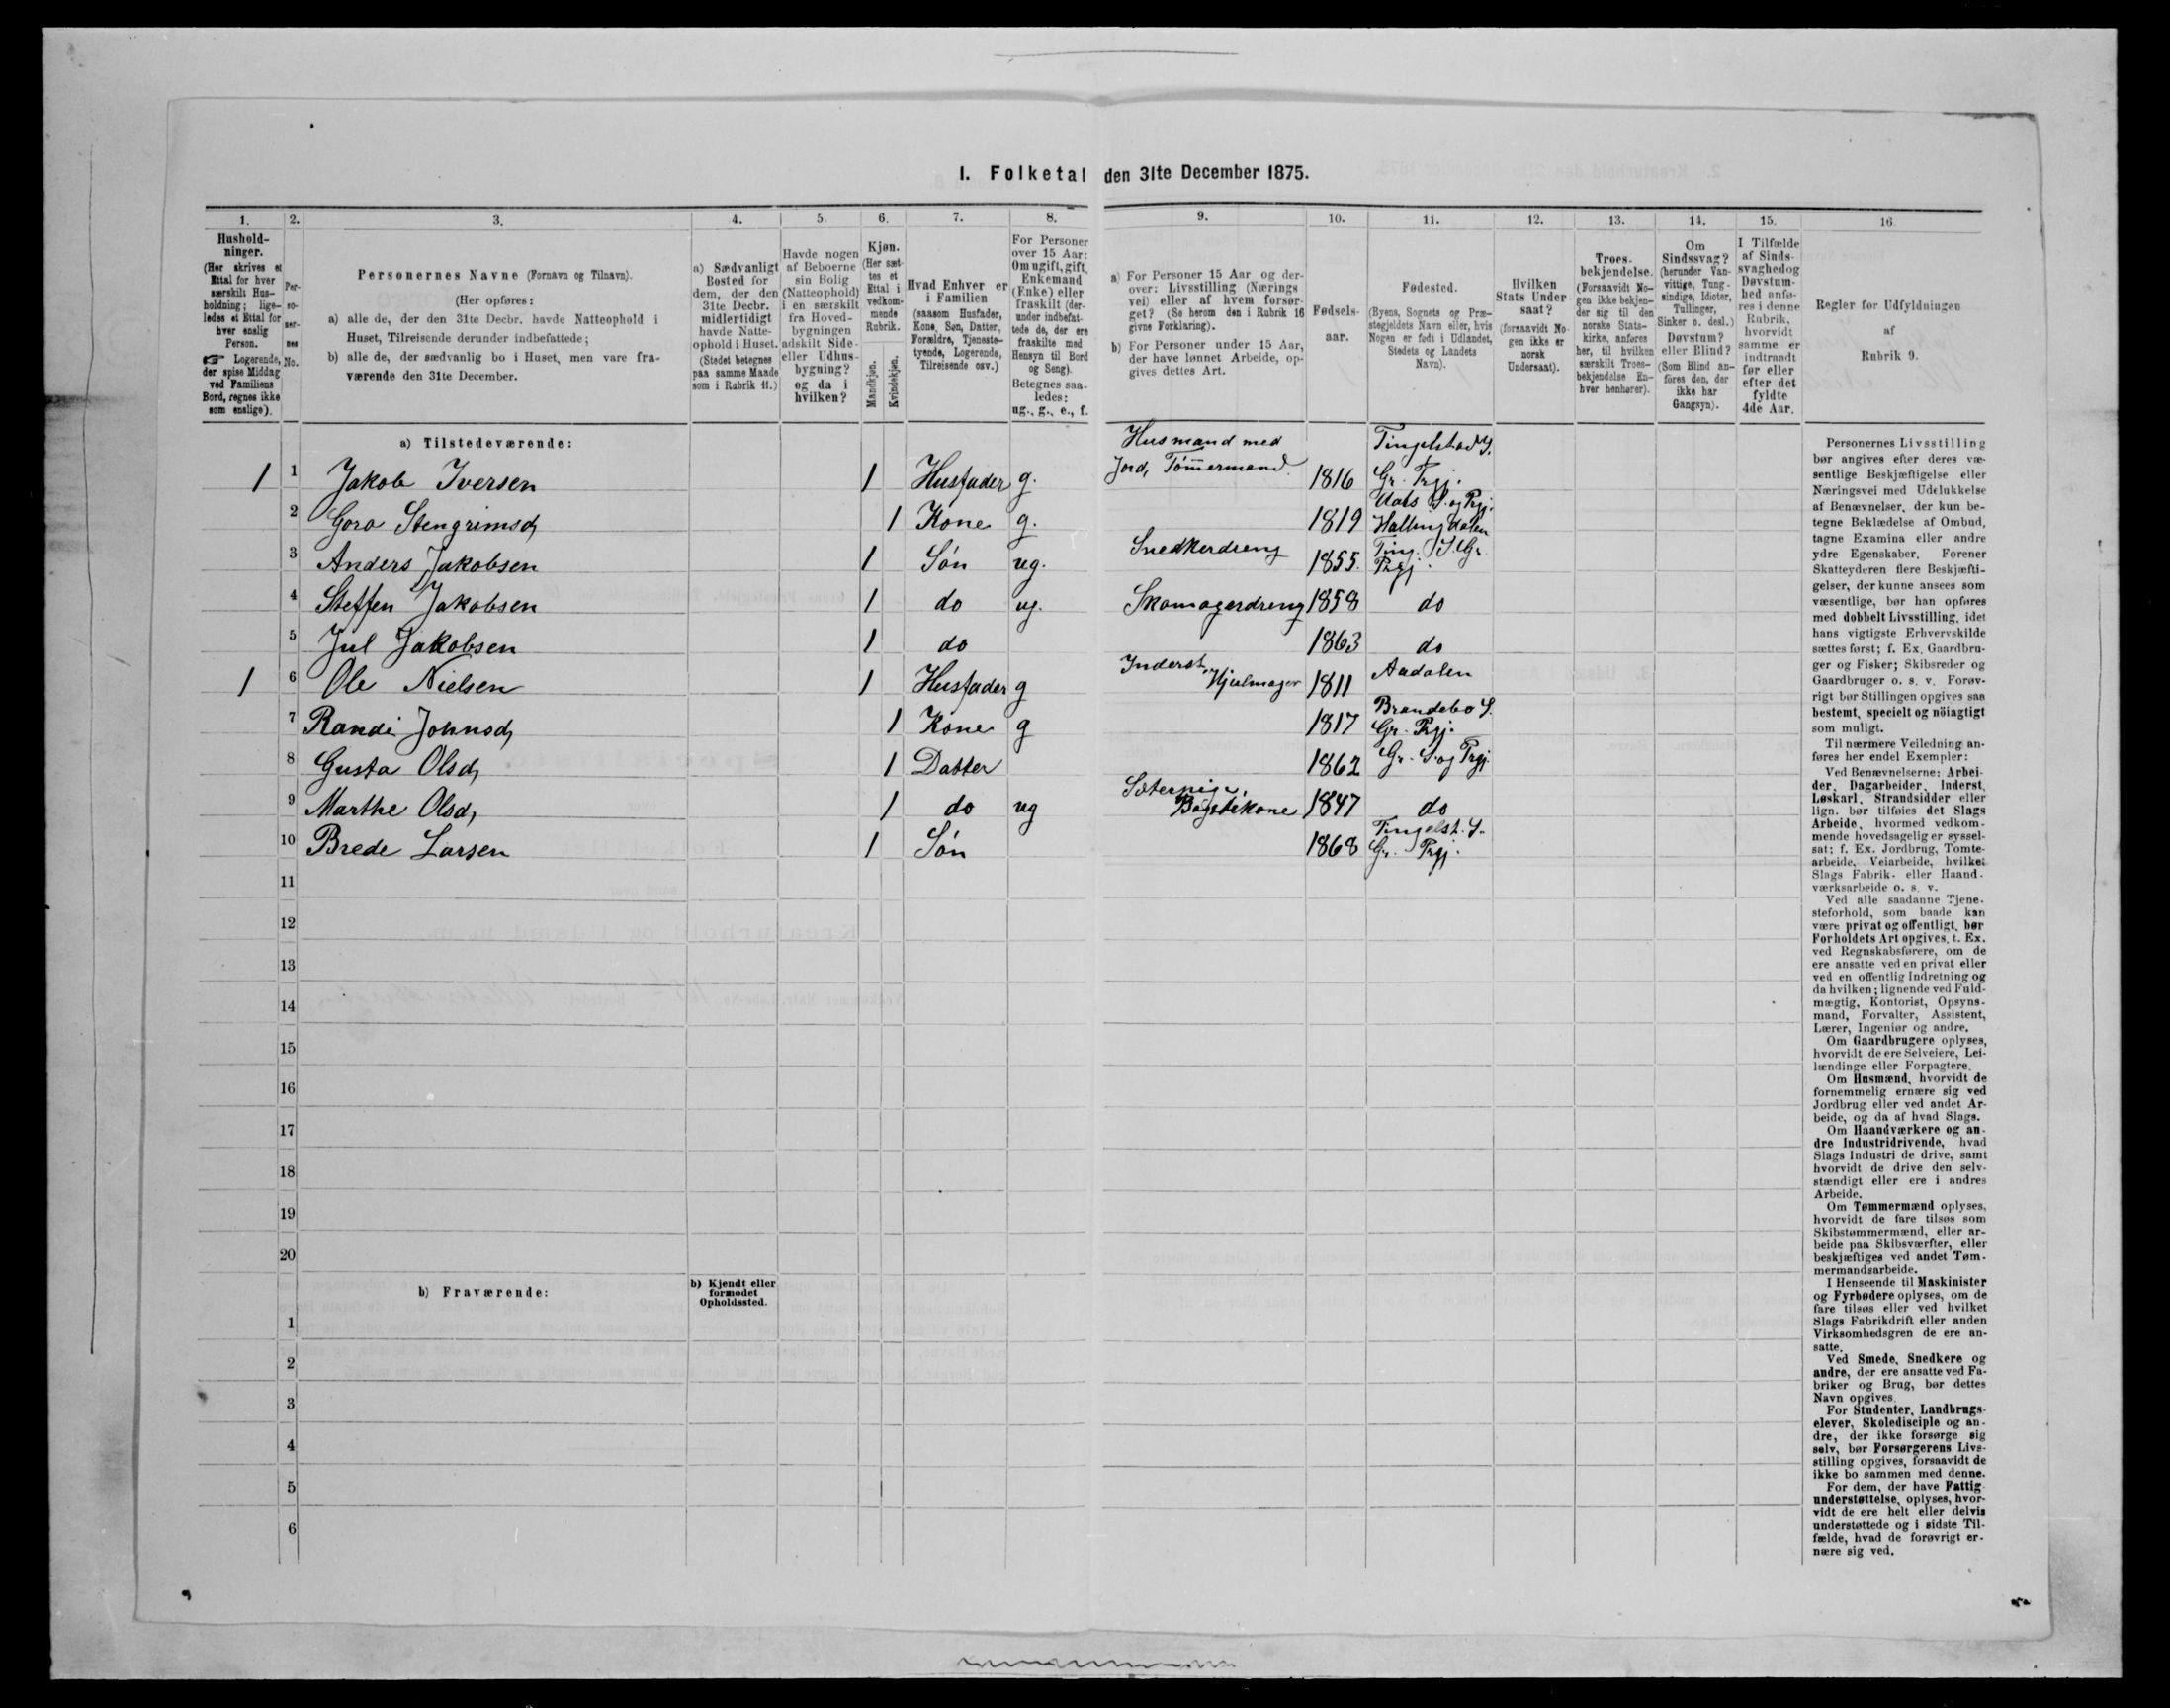 1. Folketal den 31te December 1875.
1. 2. 3. 4. 5. 6. 7. 8. 9. 10. 11. 12. 13. 14. 15. 16.
Hushold-
ninger.
(Her skrives et
Ettal for hver
særskilt Hus-
holdning; lige-
ledes et Ettal for
hver enslig
Person.
☞ Logerende,
der spise Middag
ved Familiens
Bord, regnes ikke
som enslige).
Per-
so-
ner-
nes
No.
Personernes Navne (Fornavn og Tilnavn).
(Her opføres:
a) alle de, der den 31te Decbr. havde Natteophold i
Huset, Tilreisende derunder indbefattede;
b) alle de, der sædvanlig bo i Huset, men vare fra-
værende den 31te December.
a) Sædvanligt
Bosted for
dem, der den
31te Decbr.
midlertidigt
havde Natte-
ophold i Huset.
(Stedet betegnes
paa samme Maade
som i Rubrik 11.)
Havde nogen
af Beboerne
sin Bolig
(Natteophold)
i en særskilt
fra Hoved-
bygningen
adskilt Side-
eller Udhus-
bygning?
og da i
hvilken?
Kjøn.
(Her sæt-
tes et
Ettal i
vedkom-
mende
Rubrik.
Mandkjøn.
Kvindekjøn.
Hvad Enhver er
i Familien
(saasom Husfader,
Kone, Søn, Datter,
Forældre, Tjeneste-
tyende, Logerende,
Tilreisende osv.)
For Personer
over 15 Aar:
Om ugift, gift,
Enkemand
(Enke) eller
fraskilt (der-
under indbefat-
tede de, der ere
fraskilte med
Hensyn til Bord
og Seng).
Betegnes saa-
ledes:
ug., g., e., f.
a) For Personer 15 Aar og der-
over: Livsstilling (Nærings
vei) eller af hvem forsør-
get? (Se herom den i Rubrik 16
givne Forklaring).
b) For Personer under 15 Aar,
der have lønnet Arbeide, op-
gives dettes Art.
Fødsels-
aar.
Fødested.
(Byens, Sognets og Præ-
stegjeldets Navn eller, hvis
Nogen er født i Udlandet,
Stedets og Landets
Navn).
Hvilken
Stats Under-
saat?
(forsaavidt No-
gen ikke er
norsk
Undersaat).
Troes-
bekjendelse.
(Forsaavidt No-
gen ikke bekjen-
der sig til den
norske Stats-
kirke, anføres
her, til hvilken
særskilt Troes-
bekjendelse En-
hver henhører).
Om
Sindssvag?
(herunder Van-
vittige, Tung-
sindige, Idioter,
Tullinger,
Sinker o. desl.)
Døvstum?
eller Blind?
(Som Blind an-
føres den, der
ikke har
Gangsyn).
I Tilfælde
af Sinds-
svaghedog
Døvstum-
hed anfø-
res i denne
Rubrik,
hvorvidt
samme er
indtraadt
før eller
efter det
fyldte
4de Aar.
Regler for Udfyldningen
af
Rubrik 9.
a) Tilstedeværende:
Husmand med Tingelstad S.
1 1 Jakob Iversen 1 Husfader g. Jord, Tømmermand. 1816 Gr. Prgj.
Aals S. og Prgj.
2 Goro Stengrimsd, 1 Kone g. 1819 Hallingdalen
3 Anders Jakobsen 1 Søn ug. Snedkerdreng 1855. Ting. S. Gr.
Prgj.
4 Steffen Jakobsen 1 do ug. Skomagerdreng 1858 do
5 Jul Jakobsen 1 do 1863 do
1 6 Ole Nielsen 1 Husfader g Inderst, Hjulmager 1811 Aadalen
Brandebo S.
7 Randi Johnsd, 1 Kone g 1817 Gr. Prgj.
8 Gusta Olsd, 1 Datter 1862 Gr. S og Prgj.
9 Marthe Olsd, 1 do ug Bagstekone 1847 do
Tingelst. S.
10 Brede Larsen 1 Søn 1868 Gr. Prgj.
11
12
13
14
15
16
17
18
19
20
b) Fraværende:
b) Kjendt eller
formodet
Opholdssted.
1
2
3
4
5
6
Personernes Livsstilling
bør angives efter deres væ-
sentlige Beskjæftigelse eller
Næringsvei med Udelukkelse
af Benævnelser, der kun be-
tegne Beklædelse af Ombud,
tagne Examina eller andre
ydre Egenskaber. Forener
Skatteyderen flere Beskjæfti-
gelser, der kunne ansees som
væsentlige, bør han opføres
med dobbelt Livsstilling, idet
hans vigtigste Erhvervskilde
sættes først; f. Ex. Gaardbru-
ger og Fisker; Skibsreder og
Gaardbruger o. s. v. Forøv-
rigt bør Stillingen opgives saa
bestemt, specielt og nöiagtigt
som muligt.
Til nærmere Veiledning an-
føres her endel Exempler:
Ved Benævnelserne: Arbei-
der, Dagarbeider, Inderst,
Løskarl, Strandsidder eller
lign. bør tilføies det Slags
Arbeide, hvormed vedkom-
mende hovedsagelig er syssel-
sat; f. Ex. Jordbrug, Tomte-
arbeide, Veiarbeide, hvilket
Slags Fabrik- eller Haand-
værksarbeide o. s. v.
Ved alle saadanne Tjene-
steforhold, som baade kan
være privat og offentligt, bør
Forholdets Art opgives, t. Ex.
ved Regnskabsførere, om de
ere ansatte ved en privat eller
ved en offentlig Indretning og
da hvilken; lignende ved Fuld-
mægtig, Kontorist, Opsyns-
mand, Forvalter, Assistent,
Lærer, Ingeniør og andre.
Om Gaardbrugere oplyses,
hvorvidt de ere Selveiere, Lei-
lændinge eller Forpagtere.
Om Husmænd, hvorvidt de
fornemmelig ernære sig ved
Jordbrug eller ved andet Ar-
beide, og da af hvad Slags.
Om Haandværkere og an-
dre Industridrivende, hvad
Slags Industri de drive, samt
hvorvidt de drive den selv-
stændigt eller ere i andres
Arbeide.
Om Tømmermænd oplyses,
hvorvidt de fare tilsøs som
Skibstømmermænd, eller ar-
beide paa Skibsværfter, eller
beskjæftiges ved andet Tøm-
mermandsarbeide.
I Henseende til Maskinister
og Fyrbødere oplyses, om de
fare tilsøs eller ved hvilket
Slags Fabrikdrift eller anden
Virksomhedsgren de ere an-
satte.
Ved Smede, Snedkere og
andre, der ere ansatte ved Fa-
briker og Brug, bør dettes
Navn opgives.
For Studenter, Landbrugs-
elever, Skoledisciple og an-
dre, der ikke forsørge sig
selv, bør Forsørgerens Livs-
stilling opgives, forsaavidt de
ikke bo sammen med denne.
For dem, der have Fattig
understøttelse, oplyses, hvor-
vidt de ere helt eller delvis
understøttede og i sidste Til-
fælde, hvad de forøvrigt er-
nære sig ved.